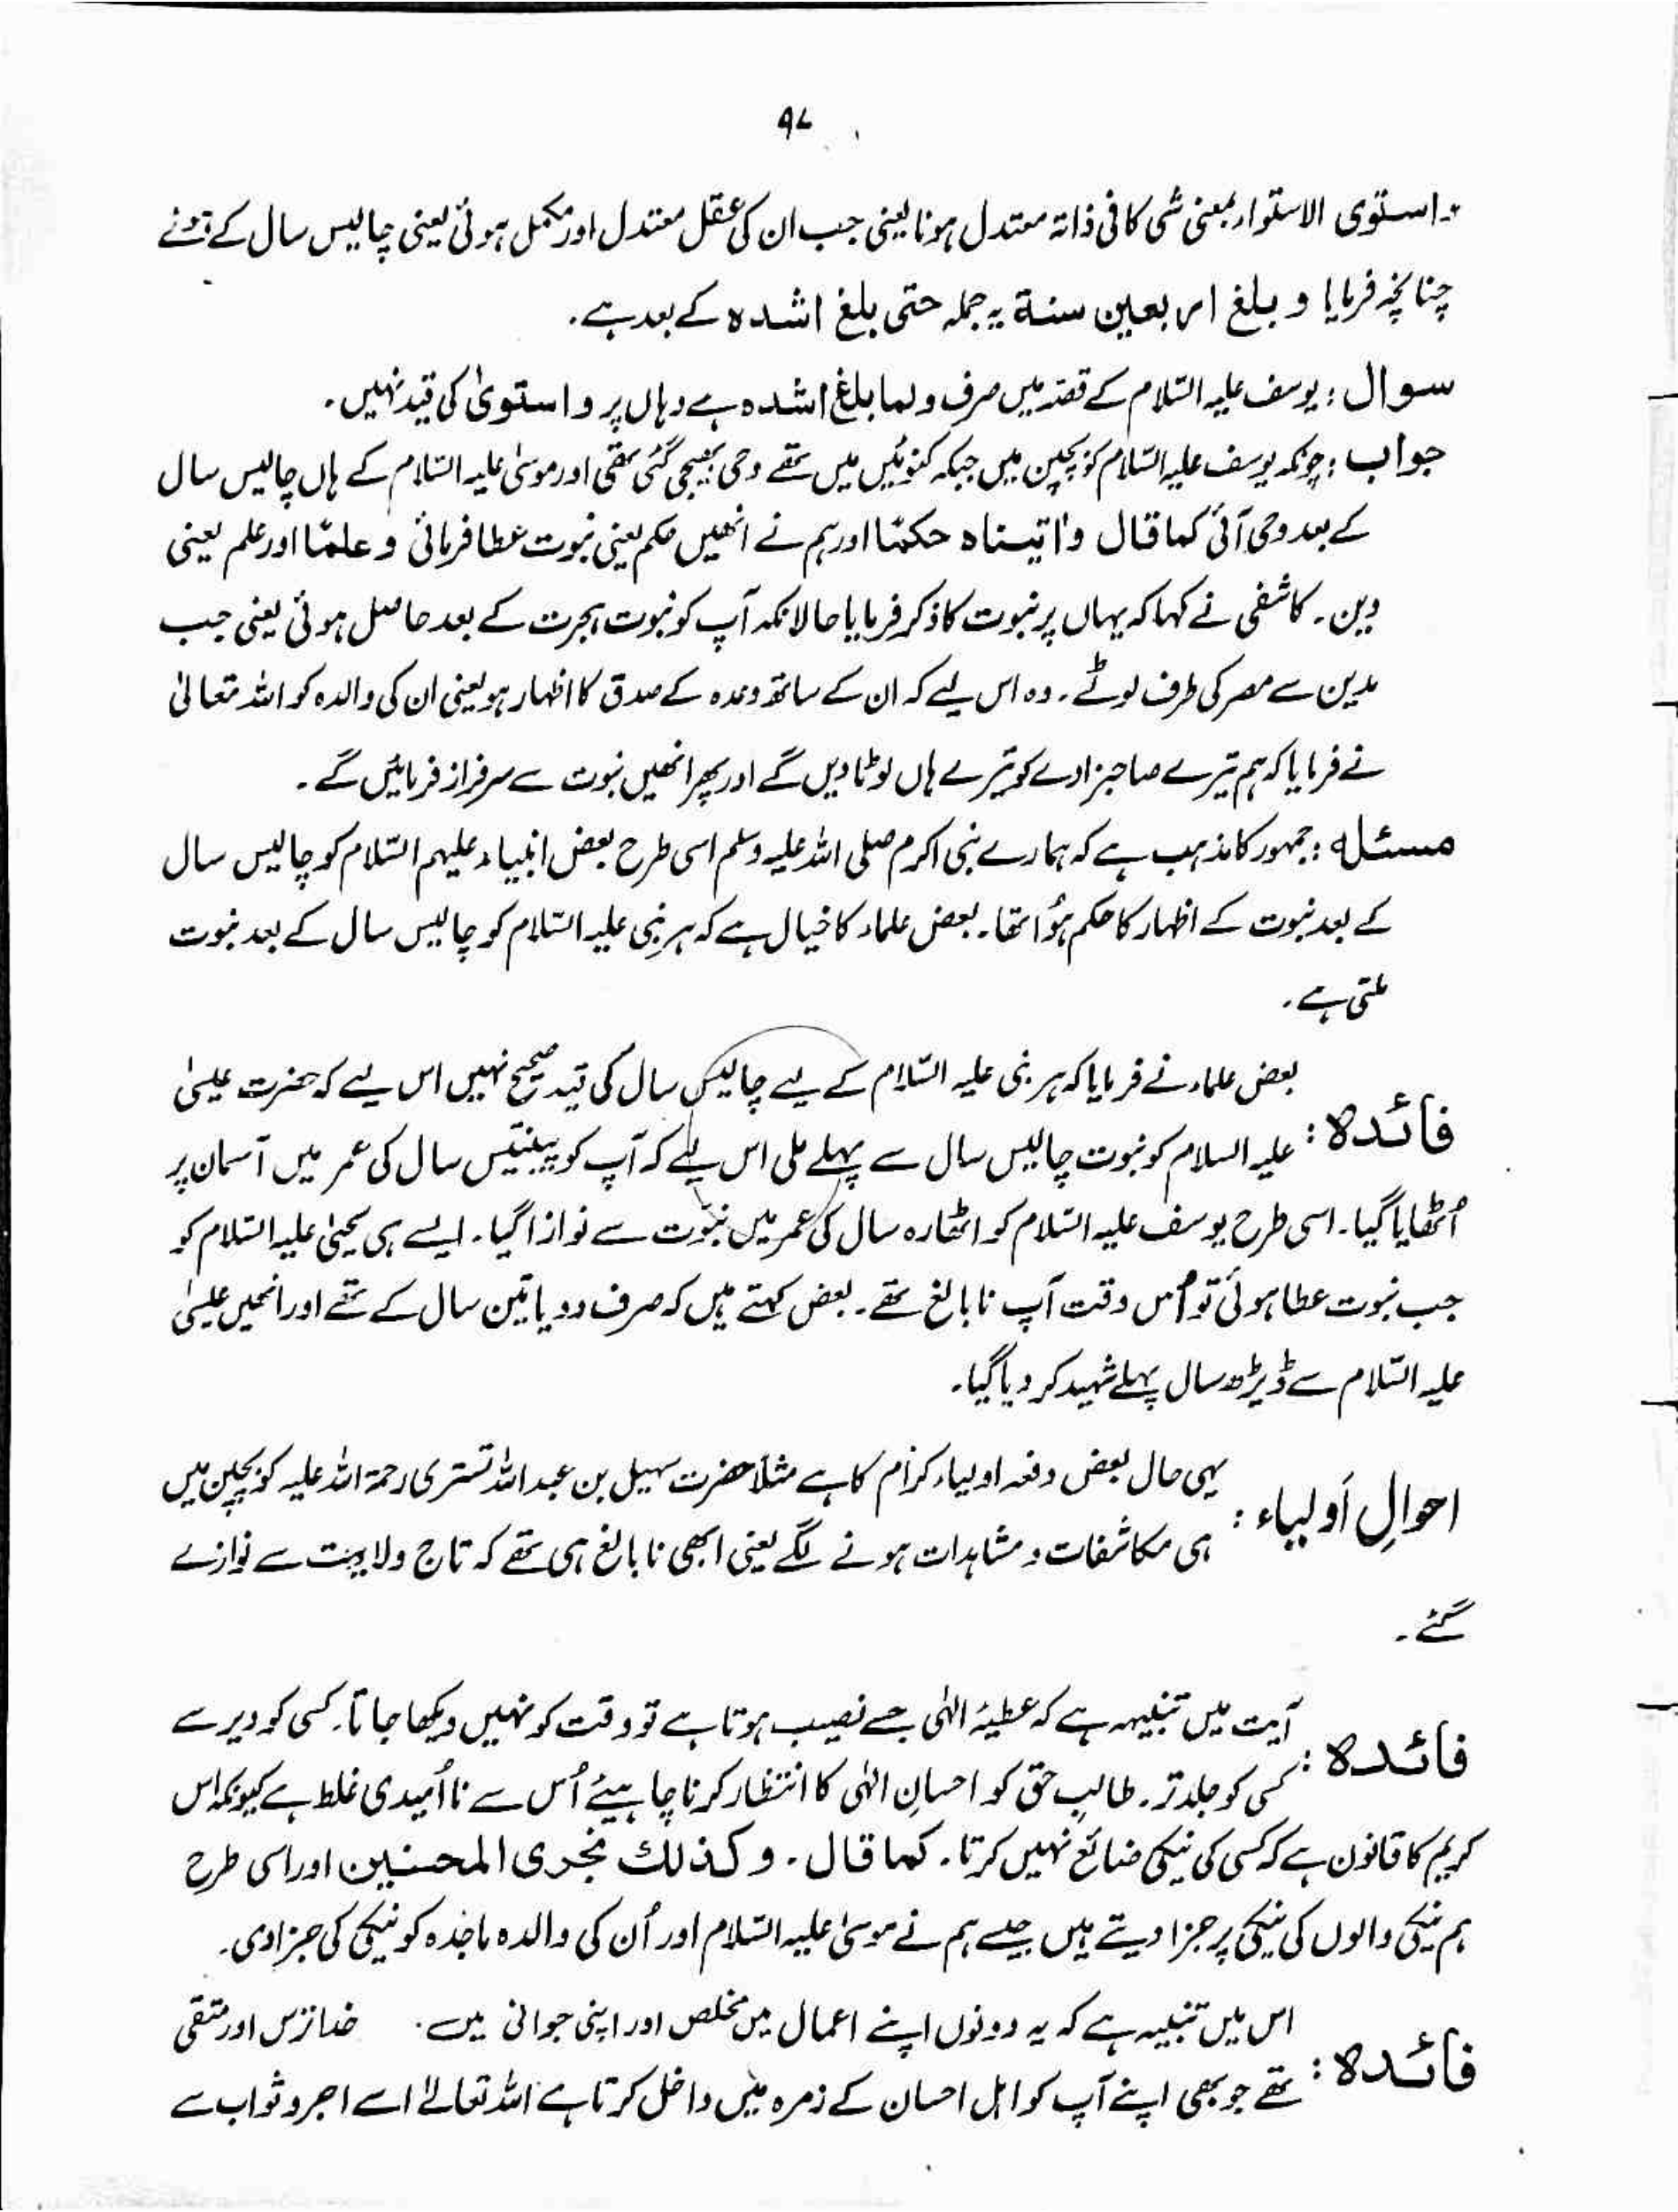 ۹۷
واستوی الاستواء بمعنی شی کا فی ذاتہ معتدل ہونا یعنی جب ان کی عقل معتدل اور مکمل ہوئی یعنی چالیس سال کے ہوئے
چنانچہ فرمایا و بلغ اربعین سنۃ یہ جملہ حتی بلغ اشدہ کے بعد ہے۔
سوال : یوسف علیہ السّلام کے قصّہ میں صرف ولما بلغ اشدہ ہے وہاں پر واستویٰ کی قید نہیں۔
جواب : چونکہ یوسف علیہ السّلام کو بچپن میں جبکہ کنوئیں میں تھے وحی بھیجی گئی تھی اور موسیٰ علیہ السّلام کے ہاں چالیس سال
کے بعد وحی آئی کما قال واٰتیناہ حکمًا اور ہم نے انھیں حکم یعنی نبوت عطا فرمائی و علمًا اور علم یعنی
دین۔ کاشفی نے کہا کہ یہاں پر نبوت کا ذکر فرمایا حالانکہ آپ کو نبوت ہجرت کے بعد حاصل ہوئی یعنی جب
مدین سے مصر کی طرف لوٹے۔ وہ اس لیے کہ ان کے ساتھ وعدہ کے صدق کا اظہار ہو یعنی ان کی والدہ کو اللہ تعالیٰ
نے فرمایا کہ ہم تیرے صاحبزادے کو تیرے ہاں لوٹا دیں گے اور پھر انھیں نبوت سے سرفراز فرمائیں گے۔
مسئلہ : جمہور کا مذہب ہے کہ ہمارے نبی اکرم صلی اللہ علیہ وسلم اسی طرح بعض انبیاء علیہم السّلام کو چالیس سال
کے بعد نبوت کے اظہار کا حکم ہُوا تھا۔ بعض علماء کا خیال ہے کہ ہر نبی علیہ السّلام کو چالیس سال کے بعد نبوت
ملتی ہے۔
بعض علماء نے فرمایا کہ ہر نبی علیہ السّلام کے لیے چالیس سال کی قید صحیح نہیں اس لیے کہ حضرت عیسیٰ
فائدہ : علیہ السلام کو نبوت چالیس سال سے پہلے ملی اس لیے کہ آپ کو پینتیس سال کی عمر میں آسمان پر
اُٹھایا گیا۔ اسی طرح یوسف علیہ السّلام کو اٹھارہ سال کی عمر میں نبوّت سے نوازا گیا۔ ایسے ہی یحییٰ علیہ السّلام کو
جب نبوت عطا ہوئی تو اُس وقت آپ نابالغ تھے۔ بعض کہتے ہیں کہ صرف دو یا تین سال کے تھے اور انھیں عیسیٰ
علیہ السّلام سے ڈیڑھ سال پہلے شہید کر دیا گیا۔
یہی حال بعض دفعہ اولیاء کرام کا ہے مثلاً حضرت سہیل بن عبداللہ تستری رحمۃ اللہ علیہ کو بچپن میں
احوالِ اَولیاء : ہی مکاشفات و مشاہدات ہونے لگے یعنی ابھی نابالغ ہی تھے کہ تاج ولایت سے نوازے
گئے۔
آیت میں تنبیہہ ہے کہ عطیۂ الٰہی جسے نصیب ہوتا ہے تو وقت کو نہیں دیکھا جاتا۔ کسی کو دیر سے
فائدہ : کسی کو جلد تر۔ طالبِ حق کو احسانِ الٰہی کا انتظار کرنا چاہیئے اُس سے نااُمیدی غلط ہے کیونکہ اس
کریم کا قانون ہے کہ کسی کی نیکی ضائع نہیں کرتا۔ کما قال۔ وکذلک نجزی المحسنین اور اسی طرح
ہم نیکی والوں کی نیکی پر جزا دیتے ہیں جیسے ہم نے موسیٰ علیہ السّلام اور اُن کی والدہ ماجدہ کو نیکی کی جزا دی۔
اس میں تنبیہ ہے کہ یہ دونوں اپنے اعمال میں مخلص اور اپنی جوانی میں۔ خدا ترس اور متقی
فائدہ : تھے جو بھی اپنے آپ کو اہل احسان کے زمرہ میں داخل کرتا ہے اللہ تعالےٰ اسے اجر و ثواب سے